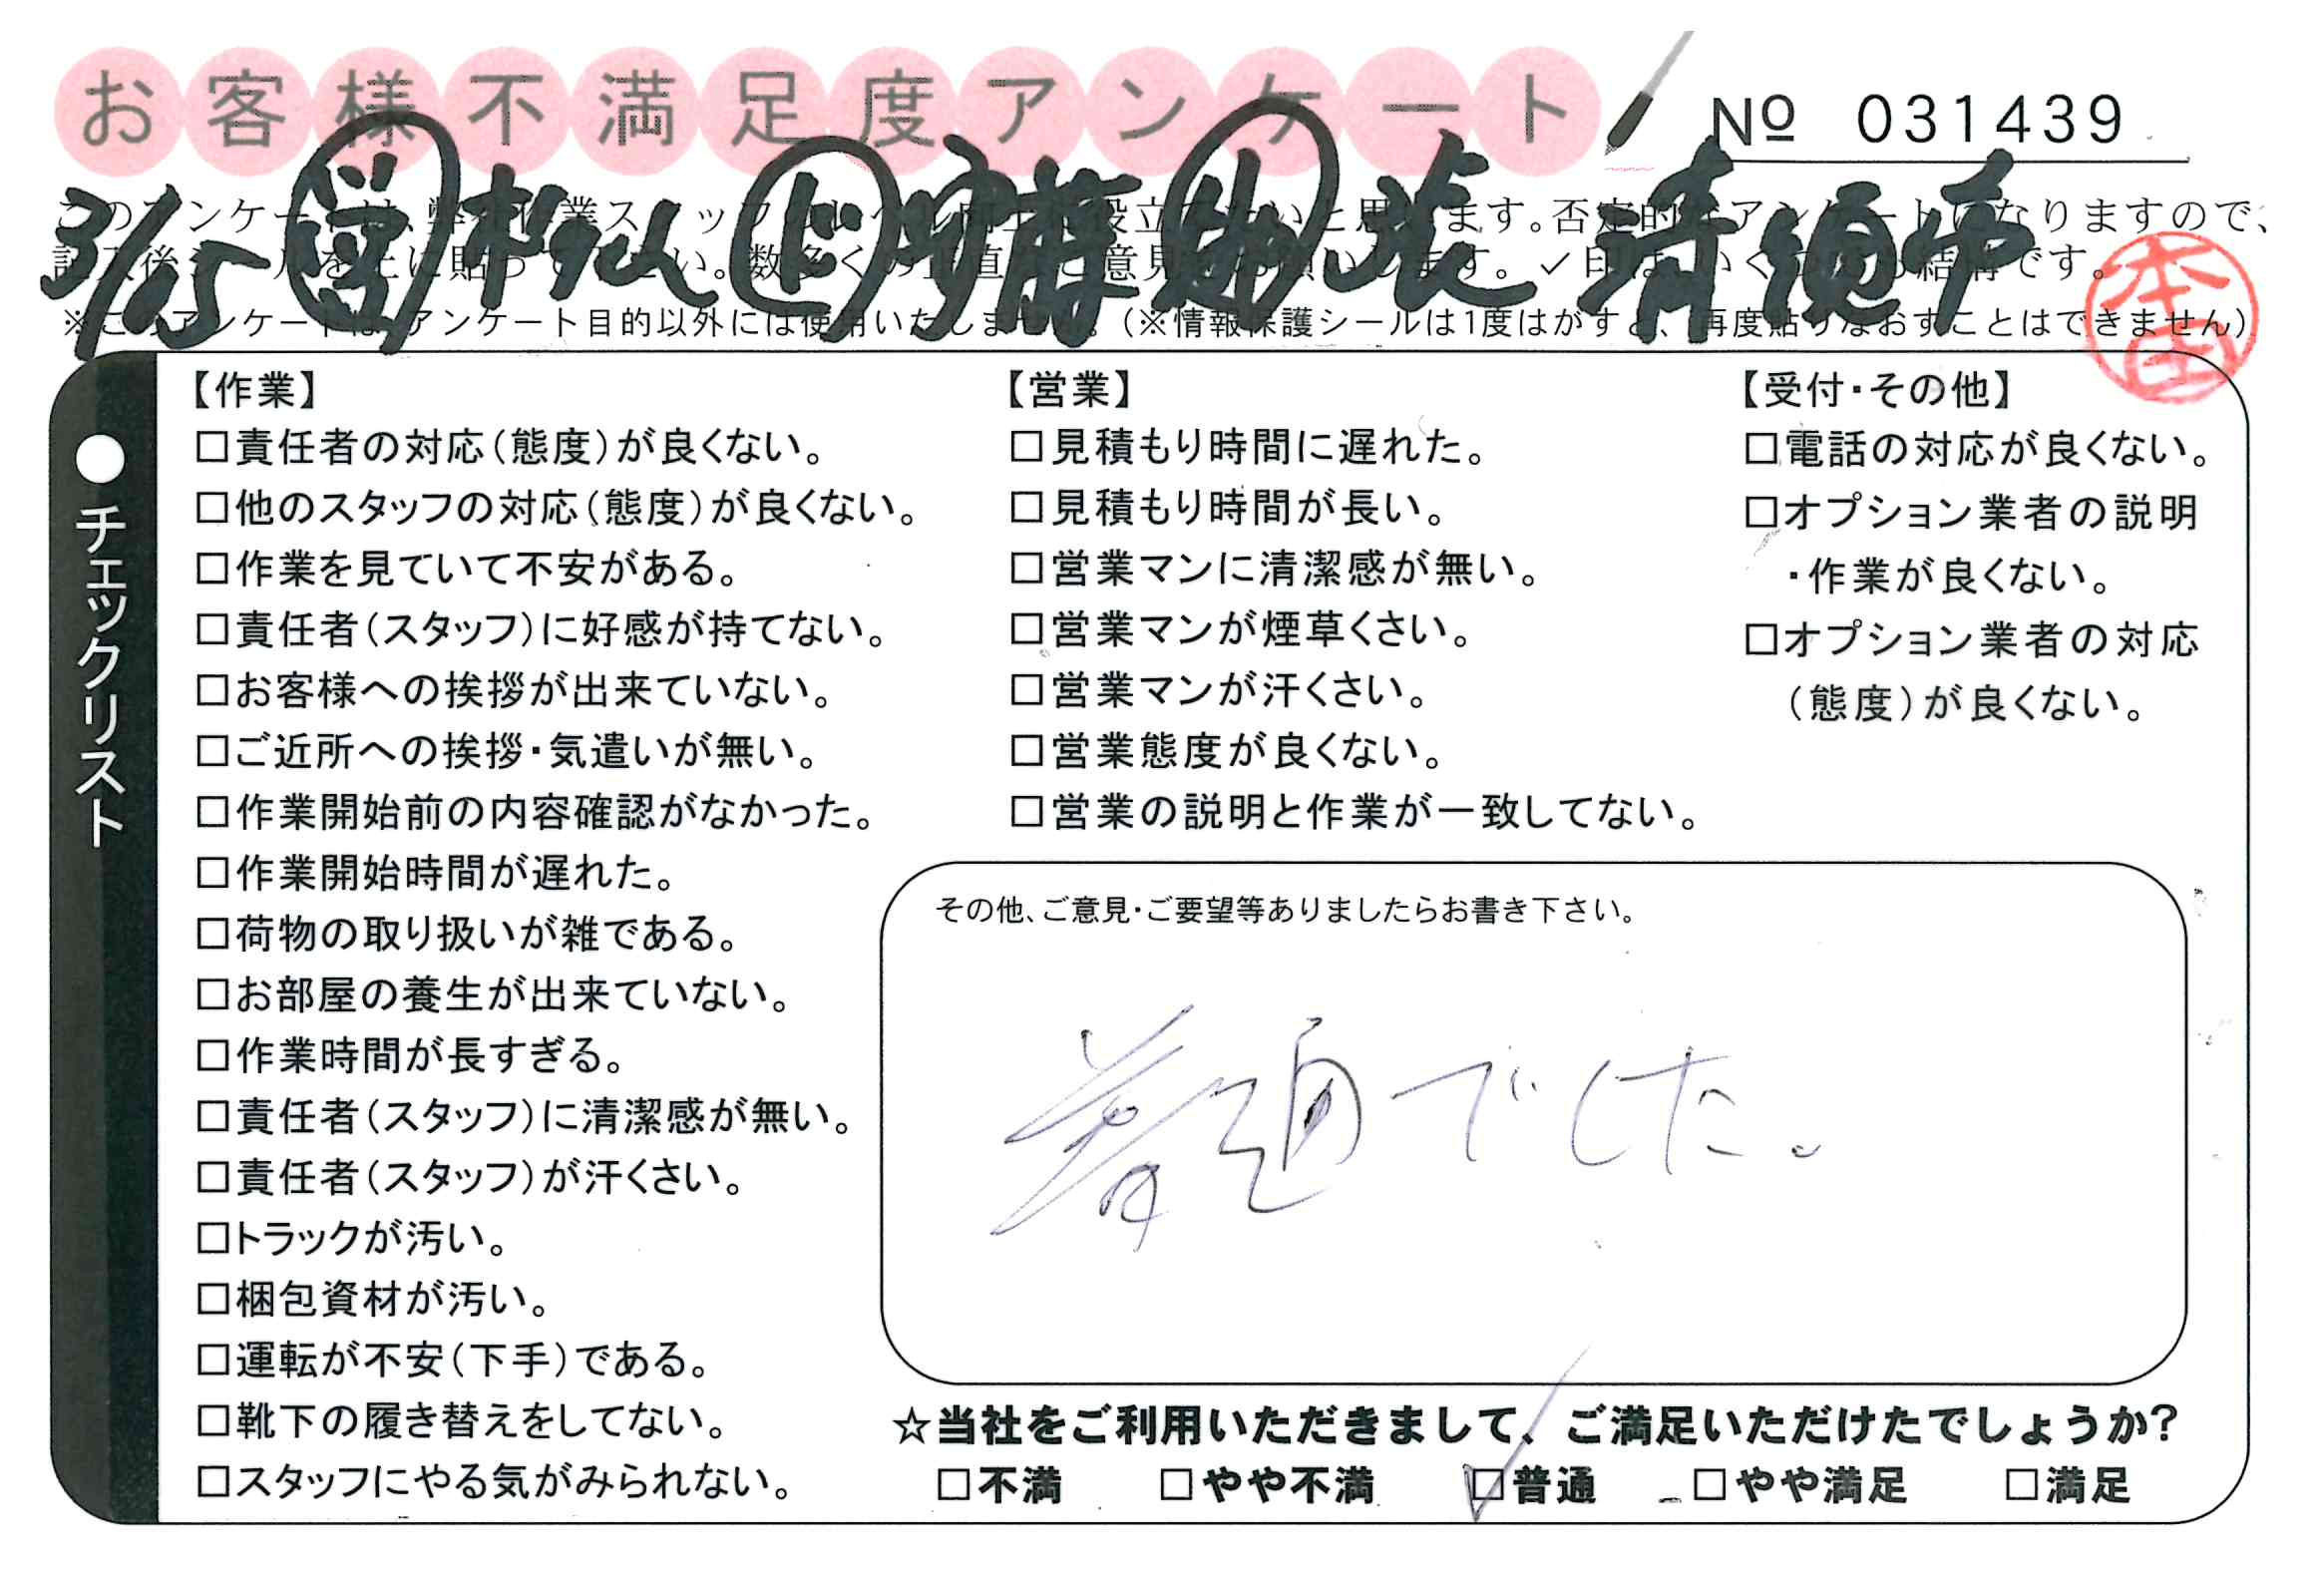 お客様不満足度アンケート
№ 031439
3/15 営 松山 ド 守藤 助 張 清須市
本田
※このアンケートは、アンケート目的以外には使用いたしません。(※情報保護シールは1度はがすと、再度貼りなおすことはできません)
●チェックリスト
【作業】
□責任者の対応(態度)が良くない。
□他のスタッフの対応(態度)が良くない。
□作業を見ていて不安がある。
□責任者(スタッフ)に好感が持てない。
□お客様への挨拶が出来ていない。
□ご近所への挨拶・気遣いが無い。
□作業開始前の内容確認がなかった。
□作業開始時間が遅れた。
□荷物の取り扱いが雑である。
□お部屋の養生が出来ていない。
□作業時間が長すぎる。
□責任者(スタッフ)に清潔感が無い。
□責任者(スタッフ)が汗くさい。
□トラックが汚い。
□梱包資材が汚い。
□運転が不安(下手)である。
□靴下の履き替えをしてない。
□スタッフにやる気がみられない。
【営業】
□見積もり時間に遅れた。
□見積もり時間が長い。
□営業マンに清潔感が無い。
□営業マンが煙草くさい。
□営業マンが汗くさい。
□営業態度が良くない。
□営業の説明と作業が一致してない。
【受付・その他】
□電話の対応が良くない。
□オプション業者の説明
・作業が良くない。
□オプション業者の対応
(態度)が良くない。
その他、ご意見・ご要望等ありましたらお書き下さい。
普通でした。
☆当社をご利用いただきまして、ご満足いただけたでしょうか?
□不満 □やや不満 ☑普通 □やや満足 □満足